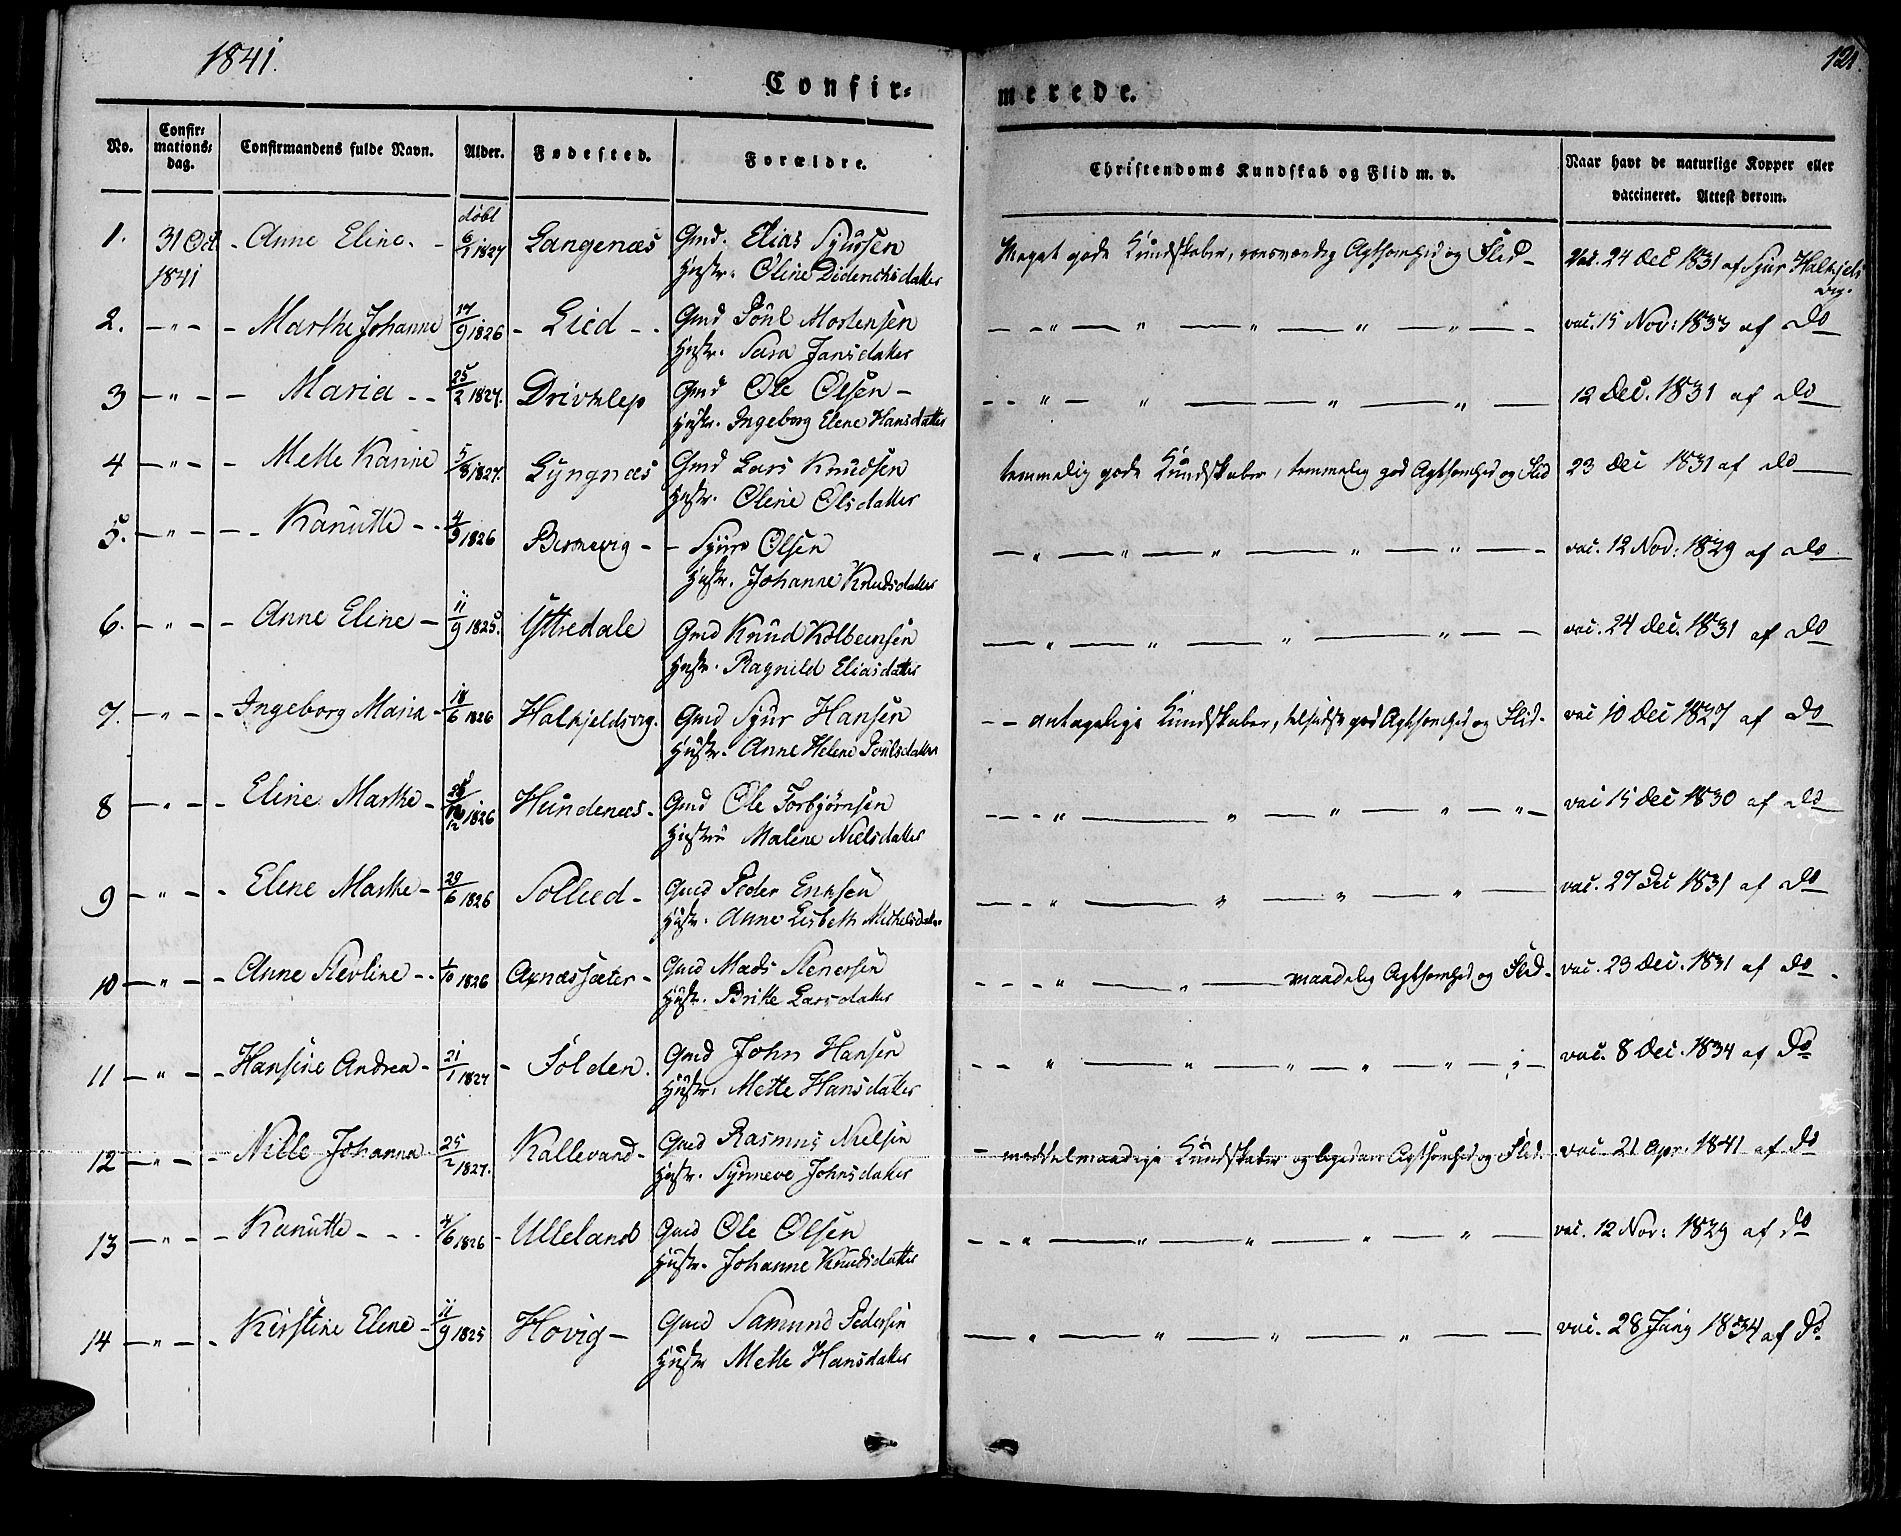 1841.
121.
Confir=
merede.
No. Confir=
mations=
dag. Confirmandens fulde Navn. Alder. Fødested. Forældre. Christendoms Kundskab og Flid m. v. Naar havt de naturlige Kopper eller
vaccineret. Attest derom.
døbt
1. 31 Oct - Anne Eline. - 1827 Langenæs Gmd. Elias Sjursen Meget gode Kundskaber, Agtsomhed og Flid - Vac. 24 Dec 1831 af Sjur Halkjels
1841 Hustr. Oline Dideriksdatter vig.
2. - " - - Marthe Johanne 17/9 1826 - Lied - - Gmd Poul Mortensen - - " - " - " - " - " - - vac. 15 Nov: 1833 af do
Hustr. Sara Jansdatter
3 - " - - Maria - - 25/2 1827. Drivklep Gmd Ole Olsen - - - " - " - " - " - 12 Dec. 1831 af do
Hustr. Ingeborg Elene Hansdatter
4 - " - - Mette Karine 5/8 1827. Lyngnæs Gmd Lars Knudsen temmelig gode Kundskaber, temmelig god Agtsomhed og Flid 23 Dec 1831 af do
Hustr. Oline Olsdatter
5. - " - - - Kanutte - - 4/9 1826 Birknevig - - Sjur Olsen - " - " - " - " - " - - vac. 12 Nov: 1829 af do
Hustr. Johanne Knudsdatter
6. - " - - Anne Eline - 11/9 1825. Yttredale Gmd Knud Kolbeinsen - " - " - " - " - - vac. 24 Dec. 1831 af do
Hustr. Ragnild Eliasdatter
7. - " - - Ingeborg Maria - 18/6 1826 Halkjeldsvig. Gmd Sjur Hansen - - antagelige Kundskaber, god Agtsomhed og Flid - vac 10 Dec 1827 af do
Hustr. Anne Helene Poulsdatter
8 - " - - Eline Marthe - 1826 Hundenæs - Gmd Ole Torbjørnsen - - - " - " - " - " - " - vac 15 Dec 1830 af do
Hustrue Malene Nielsdatter
9 - " - - Elene Marthe - 29/6 1826 Sollied - Gmd Peder Eriksen - - " - " - " - " - vac. 27 Dec 1831 af do
Hustr. Anne Lisbeth Michelsdatter
10 - " - - Anne Stevline - - 1/10 1826 Aarnæssæter - Gmd Mads Stenersen - - - " - " - maadelig Agtsomhed og Flid - vac. 23 Dec. 1831 af do -
Hustr. Britte Larsdatter
11 - " - - Hansine Andrea - 21/1 1827 - Folden. Gmd John Hansen - - " - " - " - " - " - ; - vac. 8 Dec. 1834 af do
Hustr. Mette Hansdatter
12 - " - - Nille Johanna 25/2 1827. Kallevand - Gmd Rasmus Nielsen - middelmaadige Kundskaber og ligedan Agtsomhed og Flid. vac. 21 Apr. 1841 af do
Hustr. Synneve Johnsdatter
13 - " - - Kanutte - - - 4/6 1826 - Ulleland Gmd Ole Olsen - - " - " - " - " - " - vac. 12 Nov: 1829 af do
Hustr. Johanne Knudsdatter
14 - " - - Kirstine Elene - 11/9 1825 Hovig - Gmd Samund Pedersen - " - " - " - " - - vac. 28 Juny 1834 af do
Hustr Mette Hansdatter